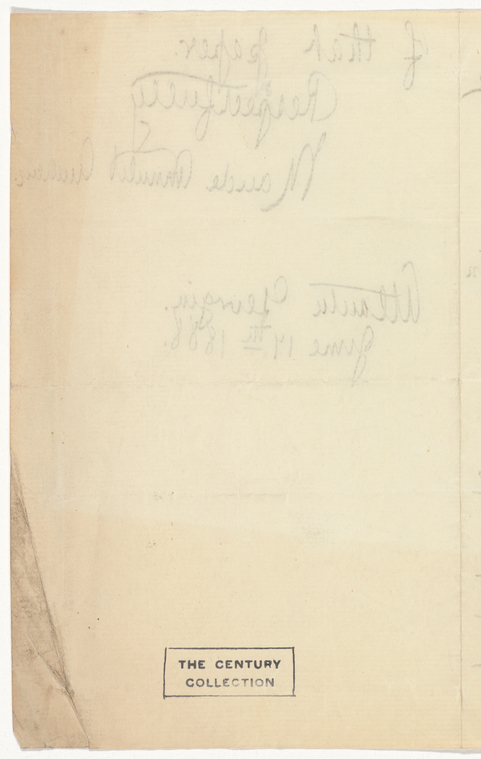 of that paper.
Respectfully
Maude Annulet Andrews
Atlanta Georgia.
June 17th 1888.
THE CENTURY
COLLECTION